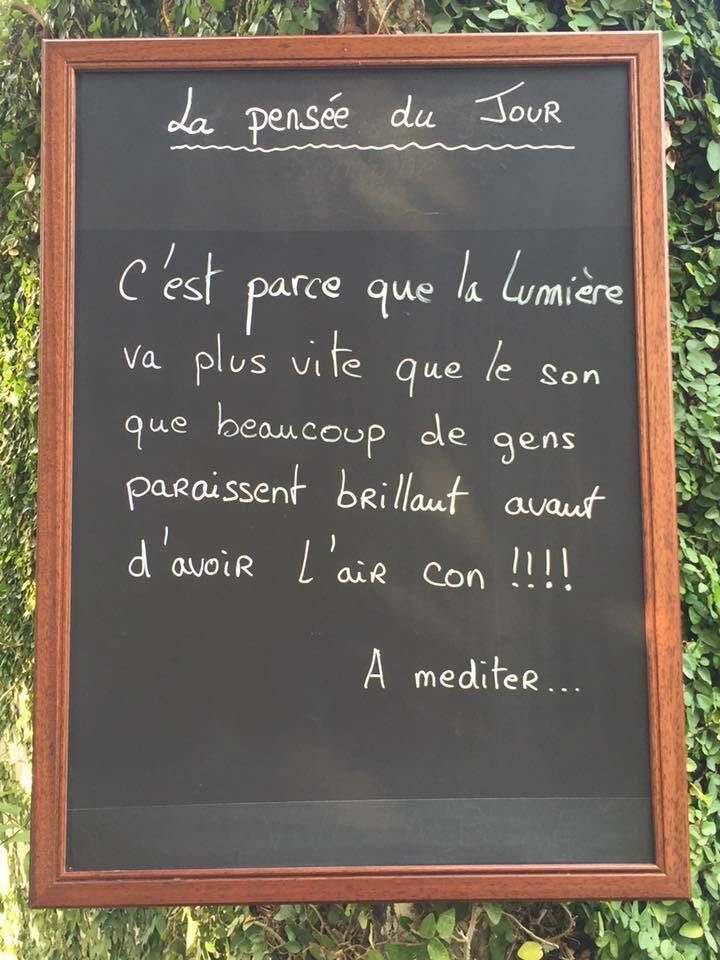 La pensée du Jour
C'est parce que la Lumière
va plus vite que le son
que beaucoup de gens
paraissent brillant avant
d'avoir l'air con !!!!
A mediter...